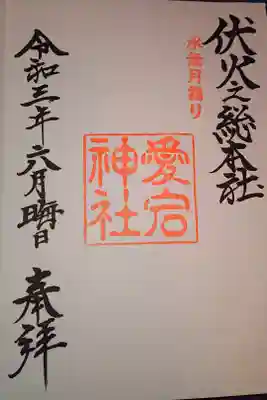 伏火之総本社
水無月詣り
愛宕
神社
令和三年六月晦日
奉拝